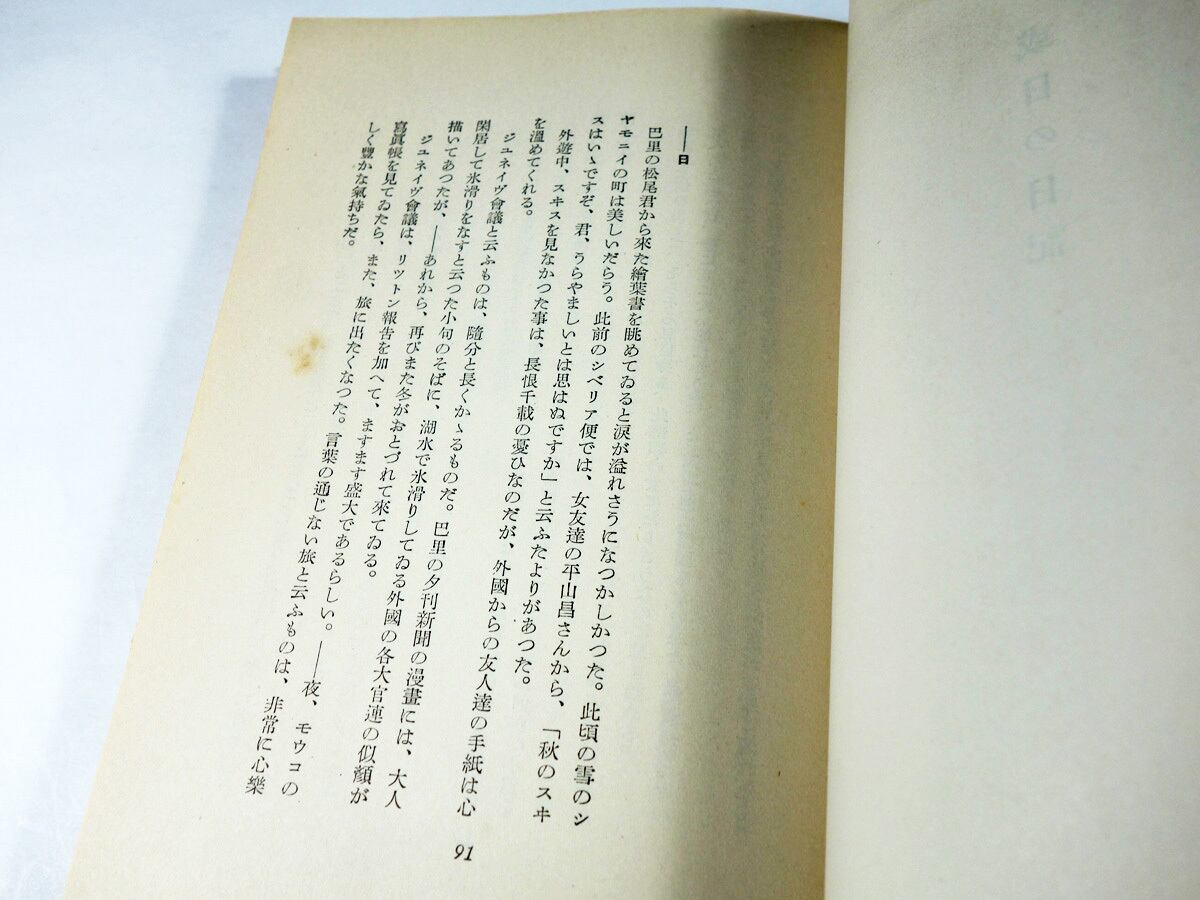 ――日
巴里の松尾君から來た繪葉書を眺めてゐると淚が溢れさうになつかしかつた。此頃の雪のシ
ヤモニイの町は美しいだらう。此前のシベリア便では、女友達の平山昌さんから、「秋のスヰ
スはいゝですぞ、君、うらやましいとは思はぬですか」と云ふたよりがあつた。
外遊中、スヰスを見なかつた事は、長恨千載の憂ひなのだが、外國からの友人達の手紙は心
を溫めてくれる。
ジユネイヴ會議と云ふものは、隨分と長くかゝるものだ。巴里の夕刊新聞の漫畫には、大人
閑居して氷滑りをなすと云つた小句のそばに、湖水で氷滑りしてゐる外國の各大官連の似顏が
描いてあつたが、――あれから、再びまた冬がおとづれて來てゐる。
ジユネイヴ會議は、リツトン報告を加へて、ますます盛大であるらしい。――夜、モウコの
寫眞帳を見てゐたら、また、旅に出たくなつた。言葉の通じない旅と云ふものは、非常に心樂
しく豐かな氣持ちだ。
91